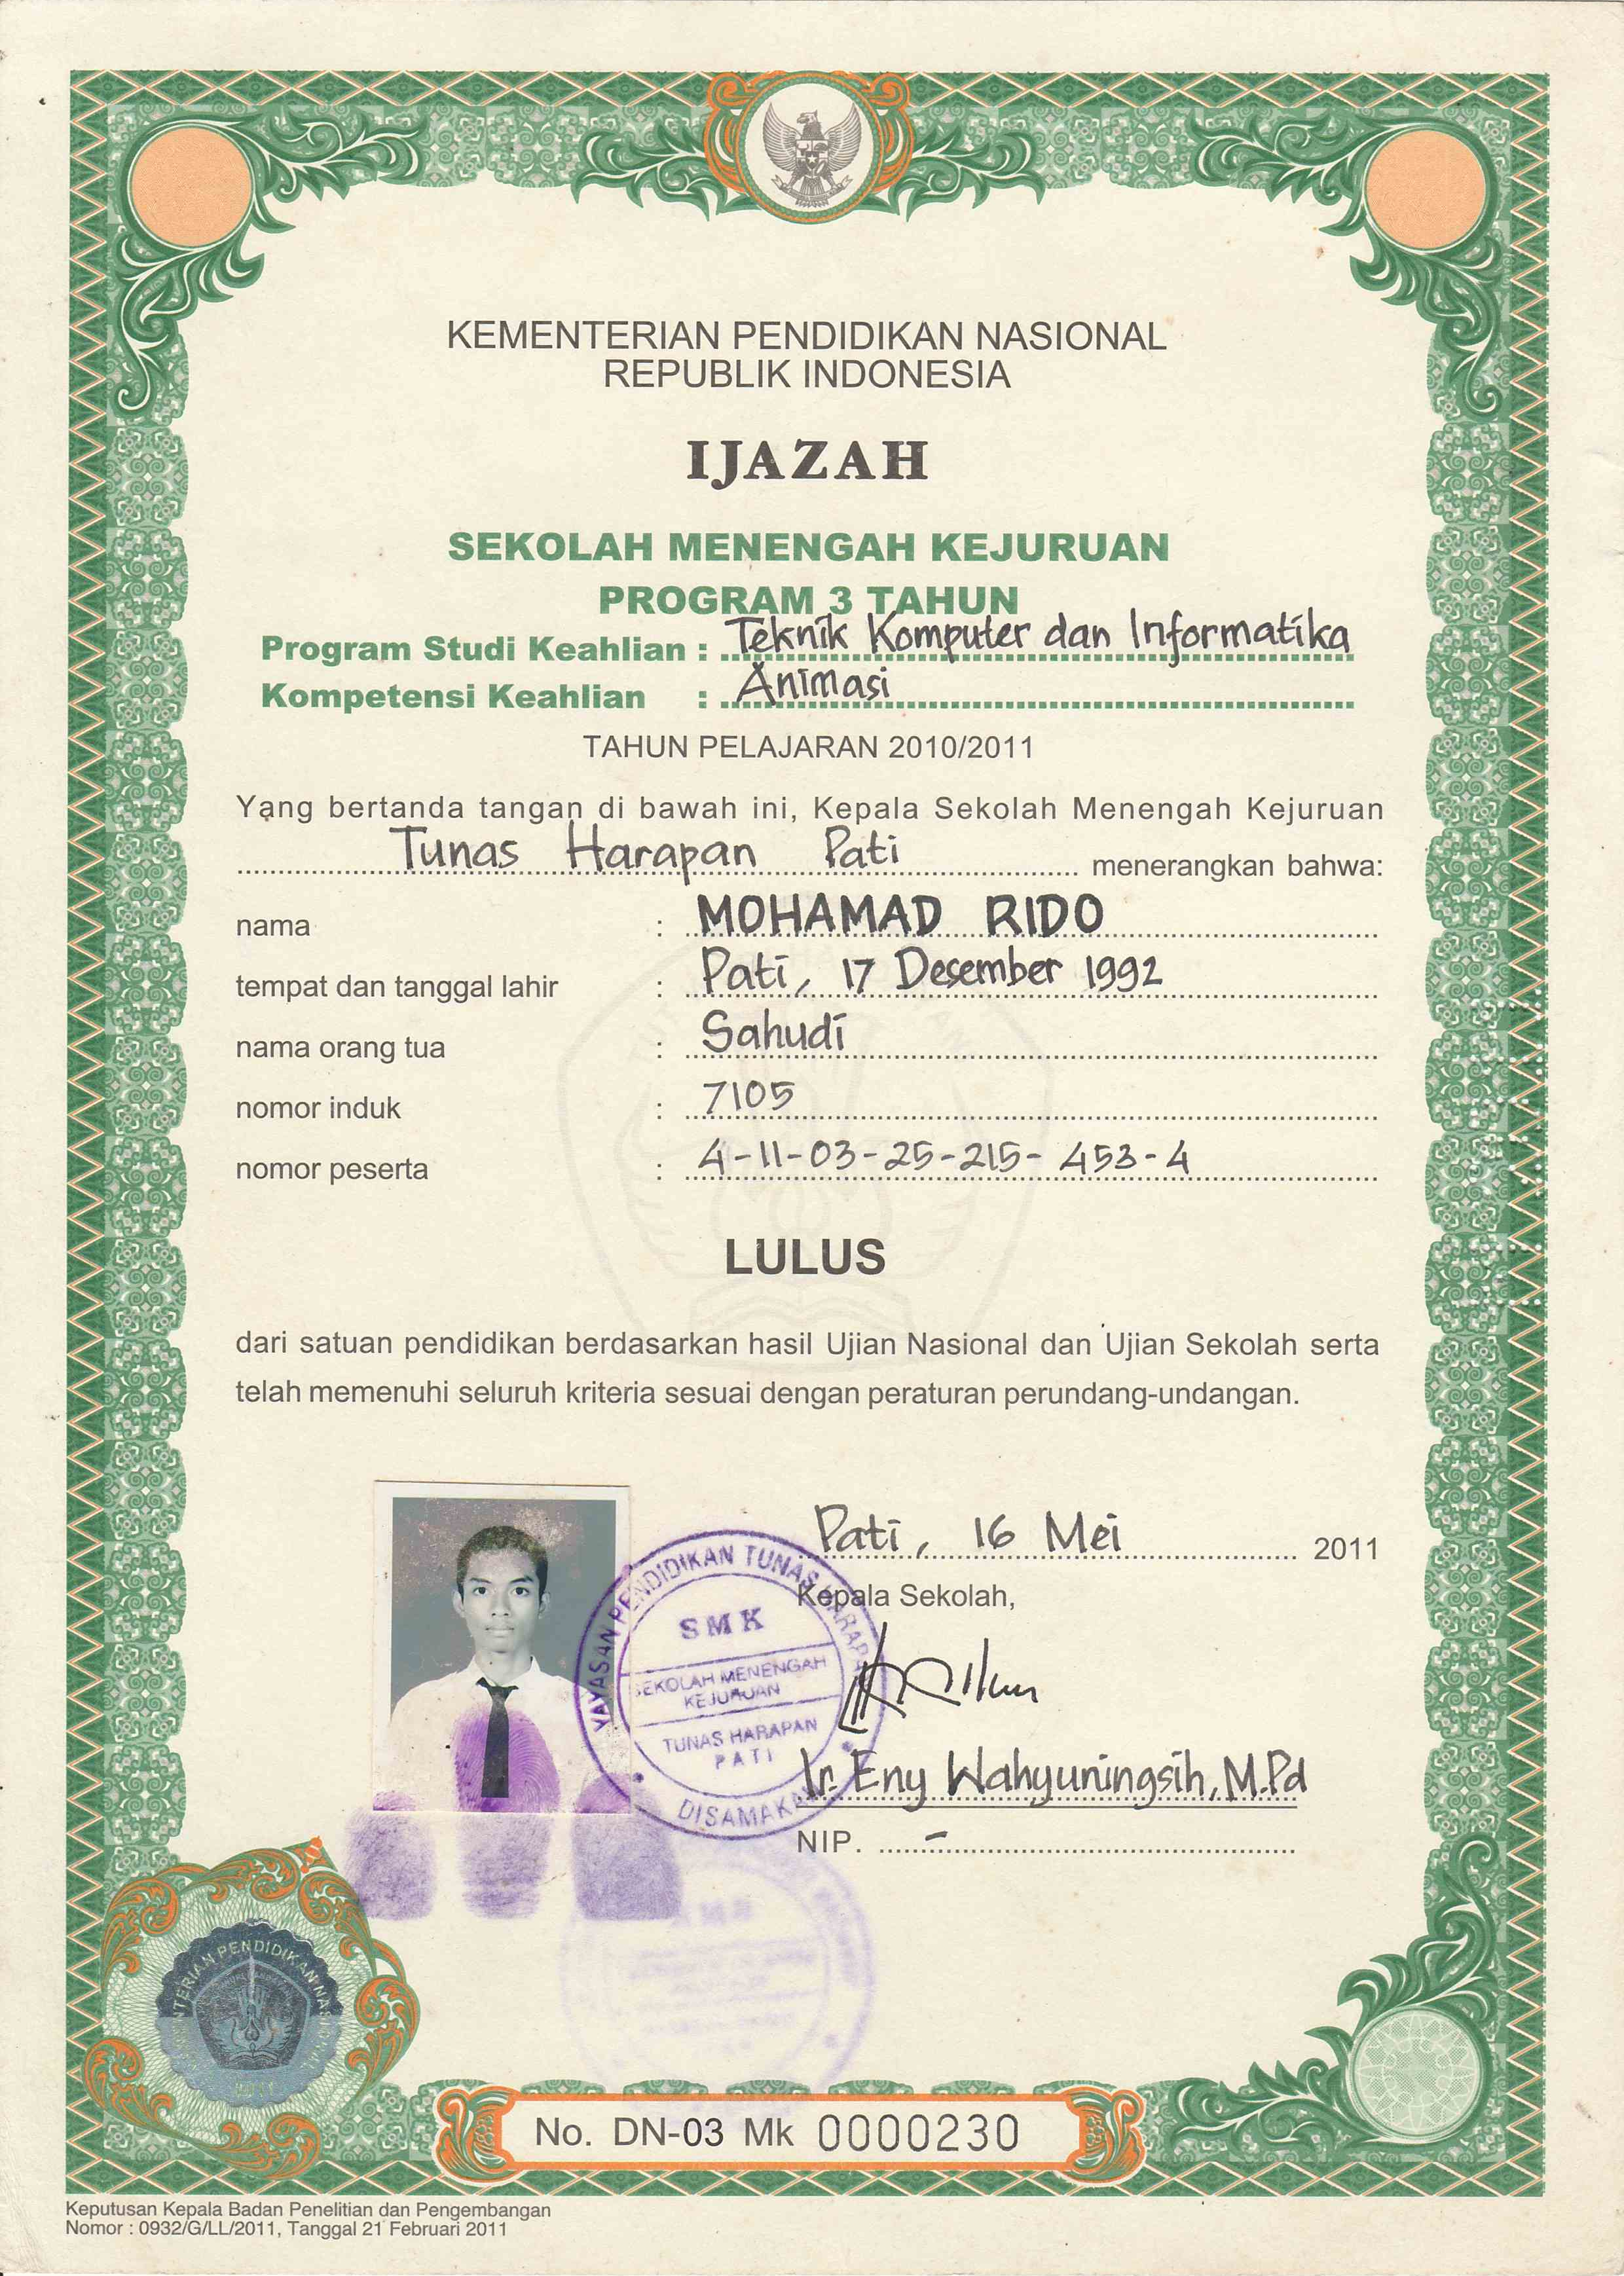 KEMENTERIAN PENDIDIKAN NASIONAL
REPUBLIK INDONESIA
IJAZAH
SEKOLAH MENENGAH KEJURUAN
PROGRAM 3 TAHUN
Program Studi Keahlian : Teknik Komputer dan Informatika
Kompetensi Keahlian : Animasi
TAHUN PELAJARAN 2010/2011
Yang bertanda tangan di bawah ini, Kepala Sekolah Menengah Kejuruan
Tunas Harapan Pati menerangkan bahwa:
nama : MOHAMAD RIDO
tempat dan tanggal lahir : Pati, 17 Desember 1992
nama orang tua : Sahudi
nomor induk : 7105
nomor peserta : 4-11-03-25-215-453-4
LULUS
dari satuan pendidikan berdasarkan hasil Ujian Nasional dan Ujian Sekolah serta
telah memenuhi seluruh kriteria sesuai dengan peraturan perundang-undangan.
Pati, 16 Mei 2011
Kepala Sekolah,
YAYASAN PENDIDIKAN TUNAS HARAPAN
SMK
SEKOLAH MENENGAH
KEJURUAN
TUNAS HARAPAN
PATI
DISAMAKAN
Ir. Eny Wahyuningsih, M.Pd
NIP. -
No. DN-03 Mk 0000230
Keputusan Kepala Badan Penelitian dan Pengembangan
Nomor : 0932/G/LL/2011, Tanggal 21 Februari 2011